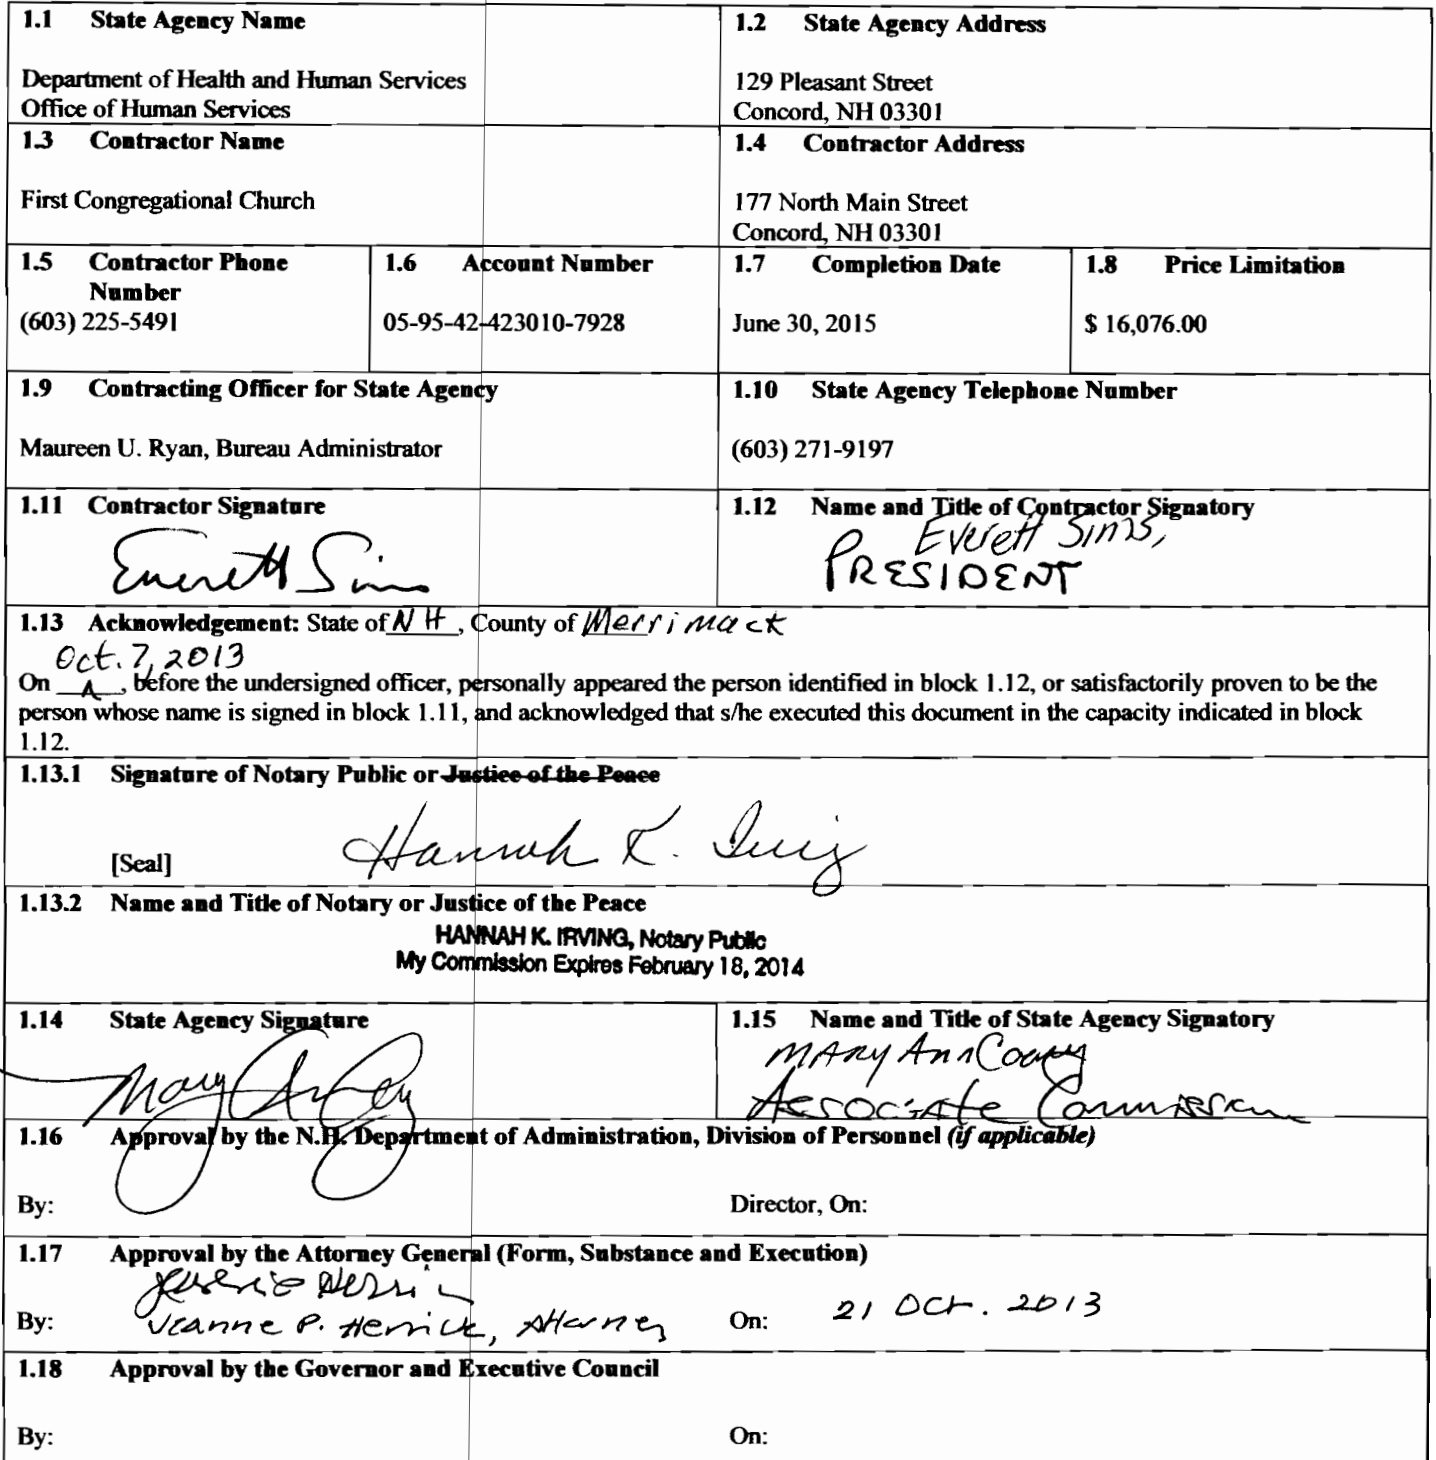 1.1 State Agency Name
Department of Health and Human Services
Office of Human Services
1.2 State Agency Address
129 Pleasant Street
Concord, NH 03301
1.3 Contractor Name
First Congregational Church
1.4 Contractor Address
177 North Main Street
Concord, NH 03301
1.5 Contractor Phone
Number
(603) 225-5491
1.6 Account Number
05-95-42-423010-7928
1.7 Completion Date
June 30, 2015
1.8 Price Limitation
$ 16,076.00
1.9 Contracting Officer for State Agency
Maureen U. Ryan, Bureau Administrator
1.10 State Agency Telephone Number
(603) 271-9197
1.11 Contractor Signature
Everett Sims
1.12 Name and Title of Contractor Signatory
Everett Sims,
PRESIDENT
1.13 Acknowledgement: State of NH, County of Merrimack
Oct. 7, 2013
On , before the undersigned officer, personally appeared the person identified in block 1.12, or satisfactorily proven to be the
person whose name is signed in block 1.11, and acknowledged that s/he executed this document in the capacity indicated in block
1.12.
1.13.1 Signature of Notary Public or Justice of the Peace
[Seal]
Hannah K. Irving
1.13.2 Name and Title of Notary or Justice of the Peace
HANNAH K. IRVING, Notary Public
My Commission Expires February 18, 2014
1.14 State Agency Signature
1.15 Name and Title of State Agency Signatory
Mary Ann Cooney
Associate Commissioner
1.16 Approval by the N.H. Department of Administration, Division of Personnel (if applicable)
By:
Director, On:
1.17 Approval by the Attorney General (Form, Substance and Execution)
By: Jeanne P. Herrick, Attorney
On: 21 Oct. 2013
1.18 Approval by the Governor and Executive Council
By:
On: